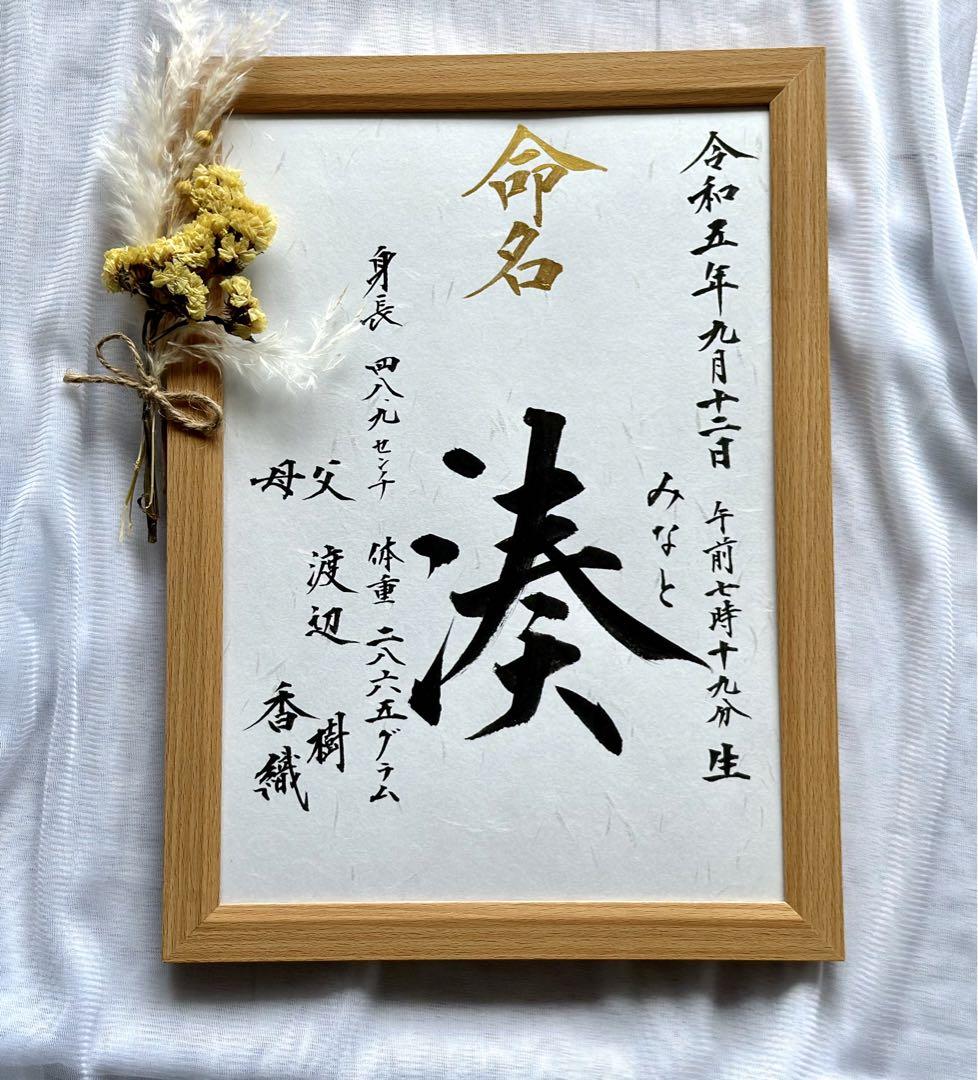 令和五年九月十二日　午前七時十九分　生
命名
みなと
湊
身長　四八.九センチ　体重　二八六五グラム
父　渡辺　樹
母　香織